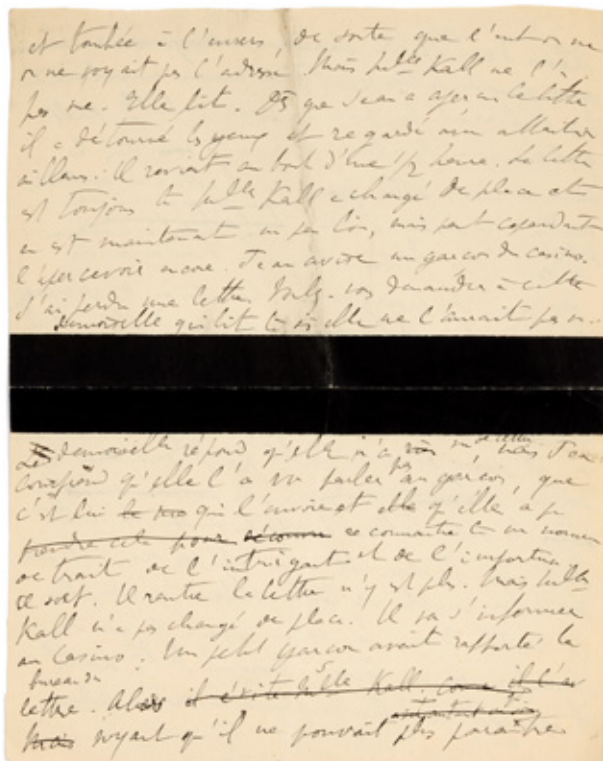 est tombée à l'envers, de sorte que l'on ne
ne voyait pas l'adresse. Mais Mlle Kall ne l'a
pas vue. Elle lit. Dès que Jean a aperçu la lettre
il a détourné les yeux et regardé avec attention
ailleurs. Il revient au bout d'une 1/2 heure. La lettre
est toujours là Mlle Kall a changé de place et
en est maintenant un peu loin, mais peut cependant
l'apercevoir encore. Jean avise un garçon du casino.
J'ai perdu une lettre. Voulez-vous demander à cette
demoiselle qui lit là si elle ne l'aurait pas vue.
La demoiselle répond qu'elle n'a pas vu de lettre, mais Jean
comprend qu'elle l'a vu parler au garçon, que
c'est lui qui l'envoie et qu'elle a pu
prendre cela pour reconnaître là un nouveau
trait de l'intrigant et de l'importun
Il rentre la lettre n'y est plus. Mais Mlle
Kall n'a pas changé de place. Il va s'informer
au Casino. Un petit garçon avait rapporté la
bureau du
lettre. Alors il évite Mlle Kall. comme il l'a
mais voyant qu'il ne pouvait plus paraître